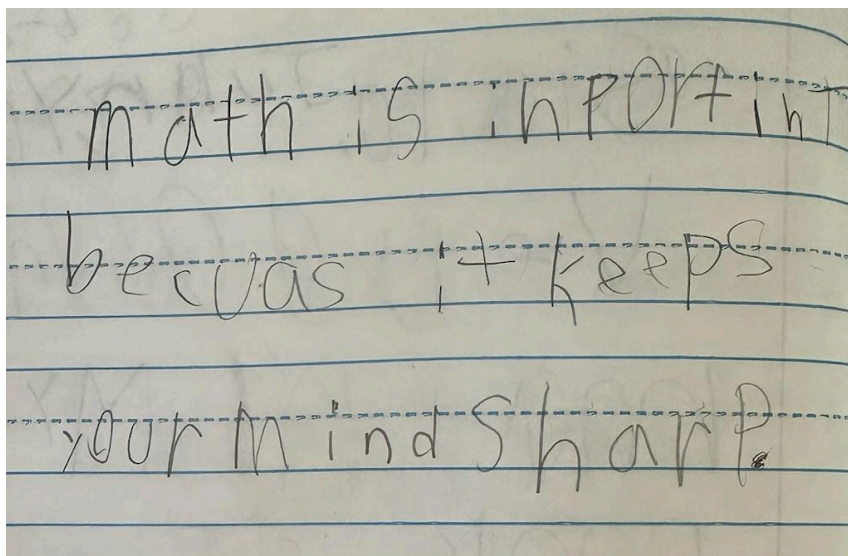 math is inportint
becuas it keeps
your mind sharp.